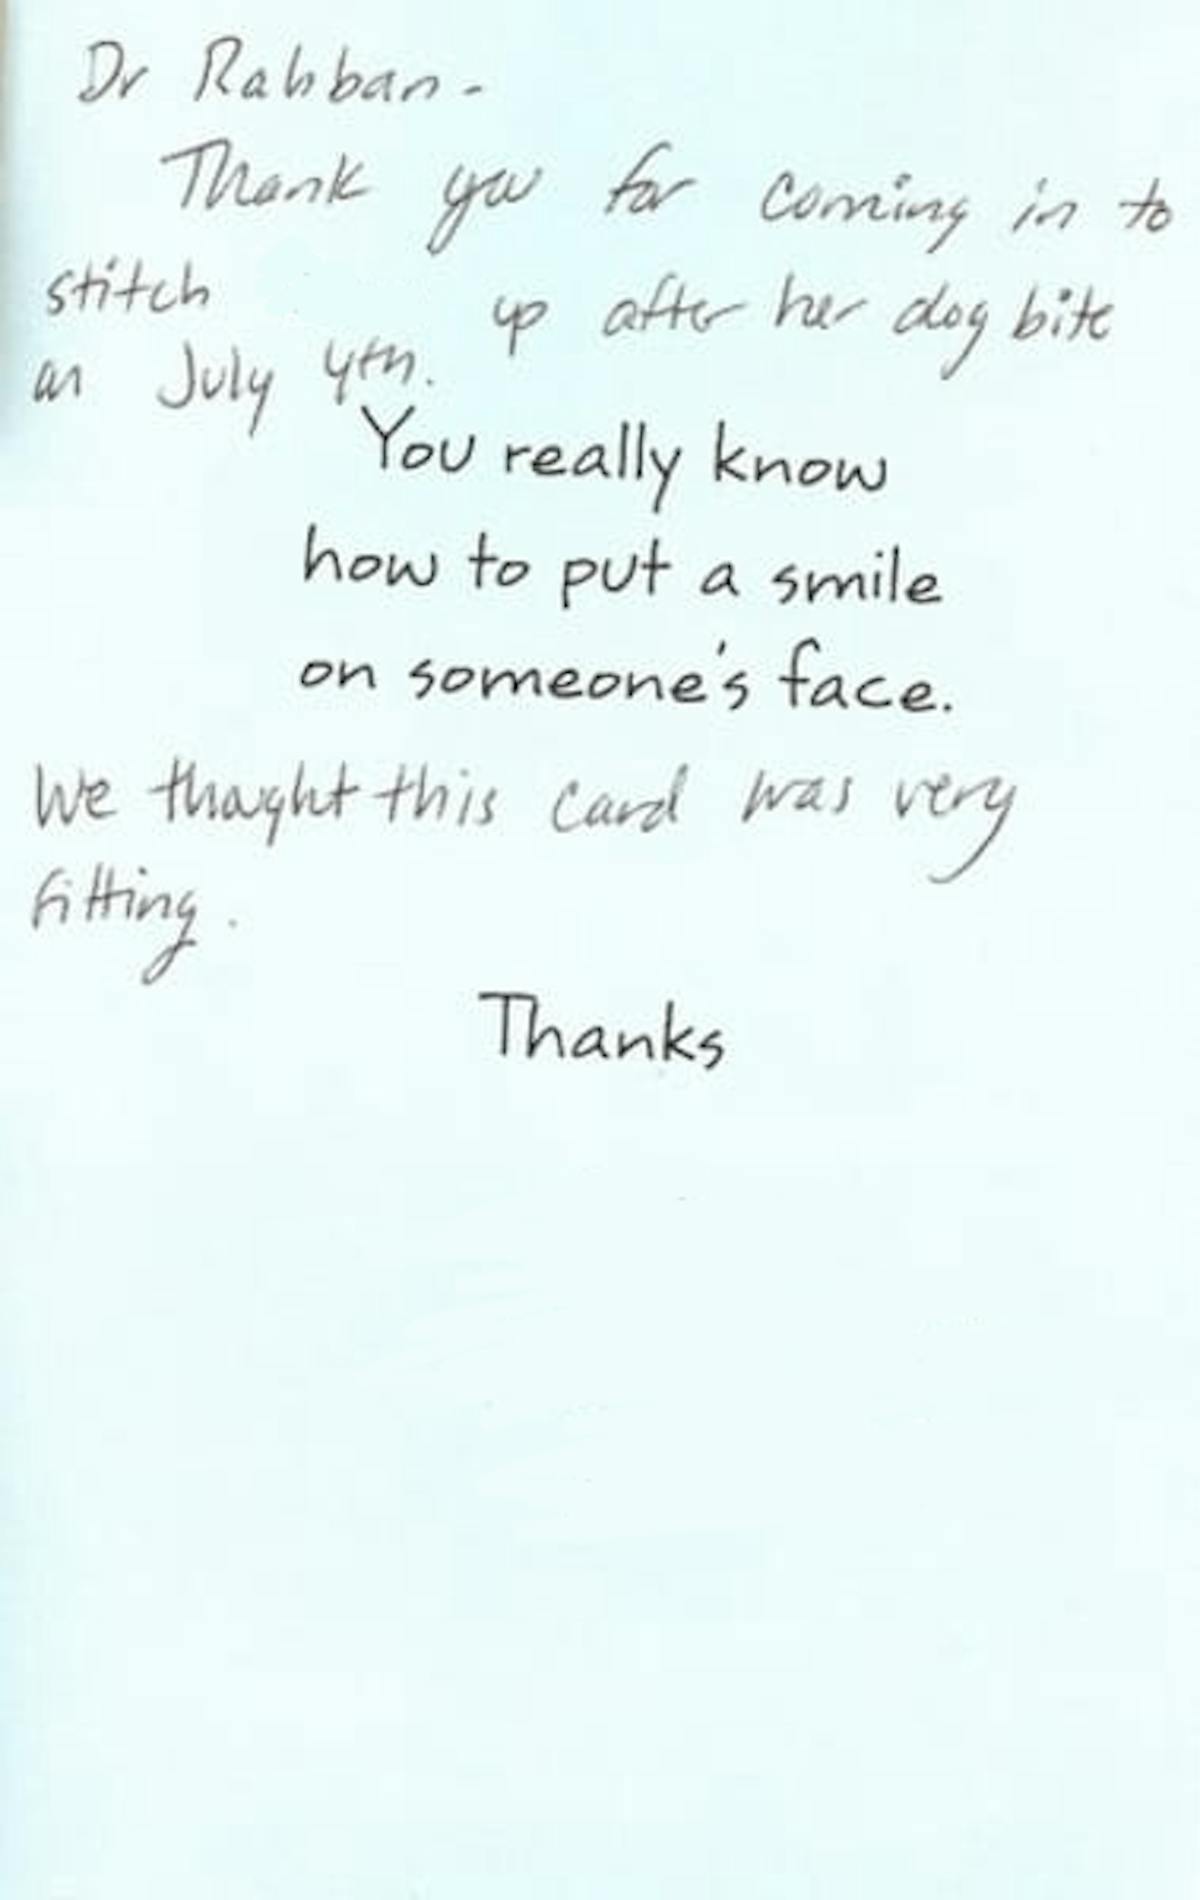 Dr Rahban -
Thank you for coming in to
stitch up after her dog bite
on July 4th.
You really know
how to put a smile
on someone's face.
We thought this card was very
fitting.
Thanks